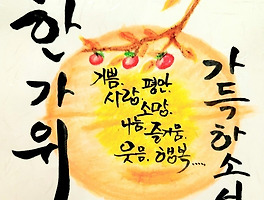 한가위
기쁨. 평안.
사랑. 소망.
나눔. 즐거움.
웃음. 행복.....
가득하소